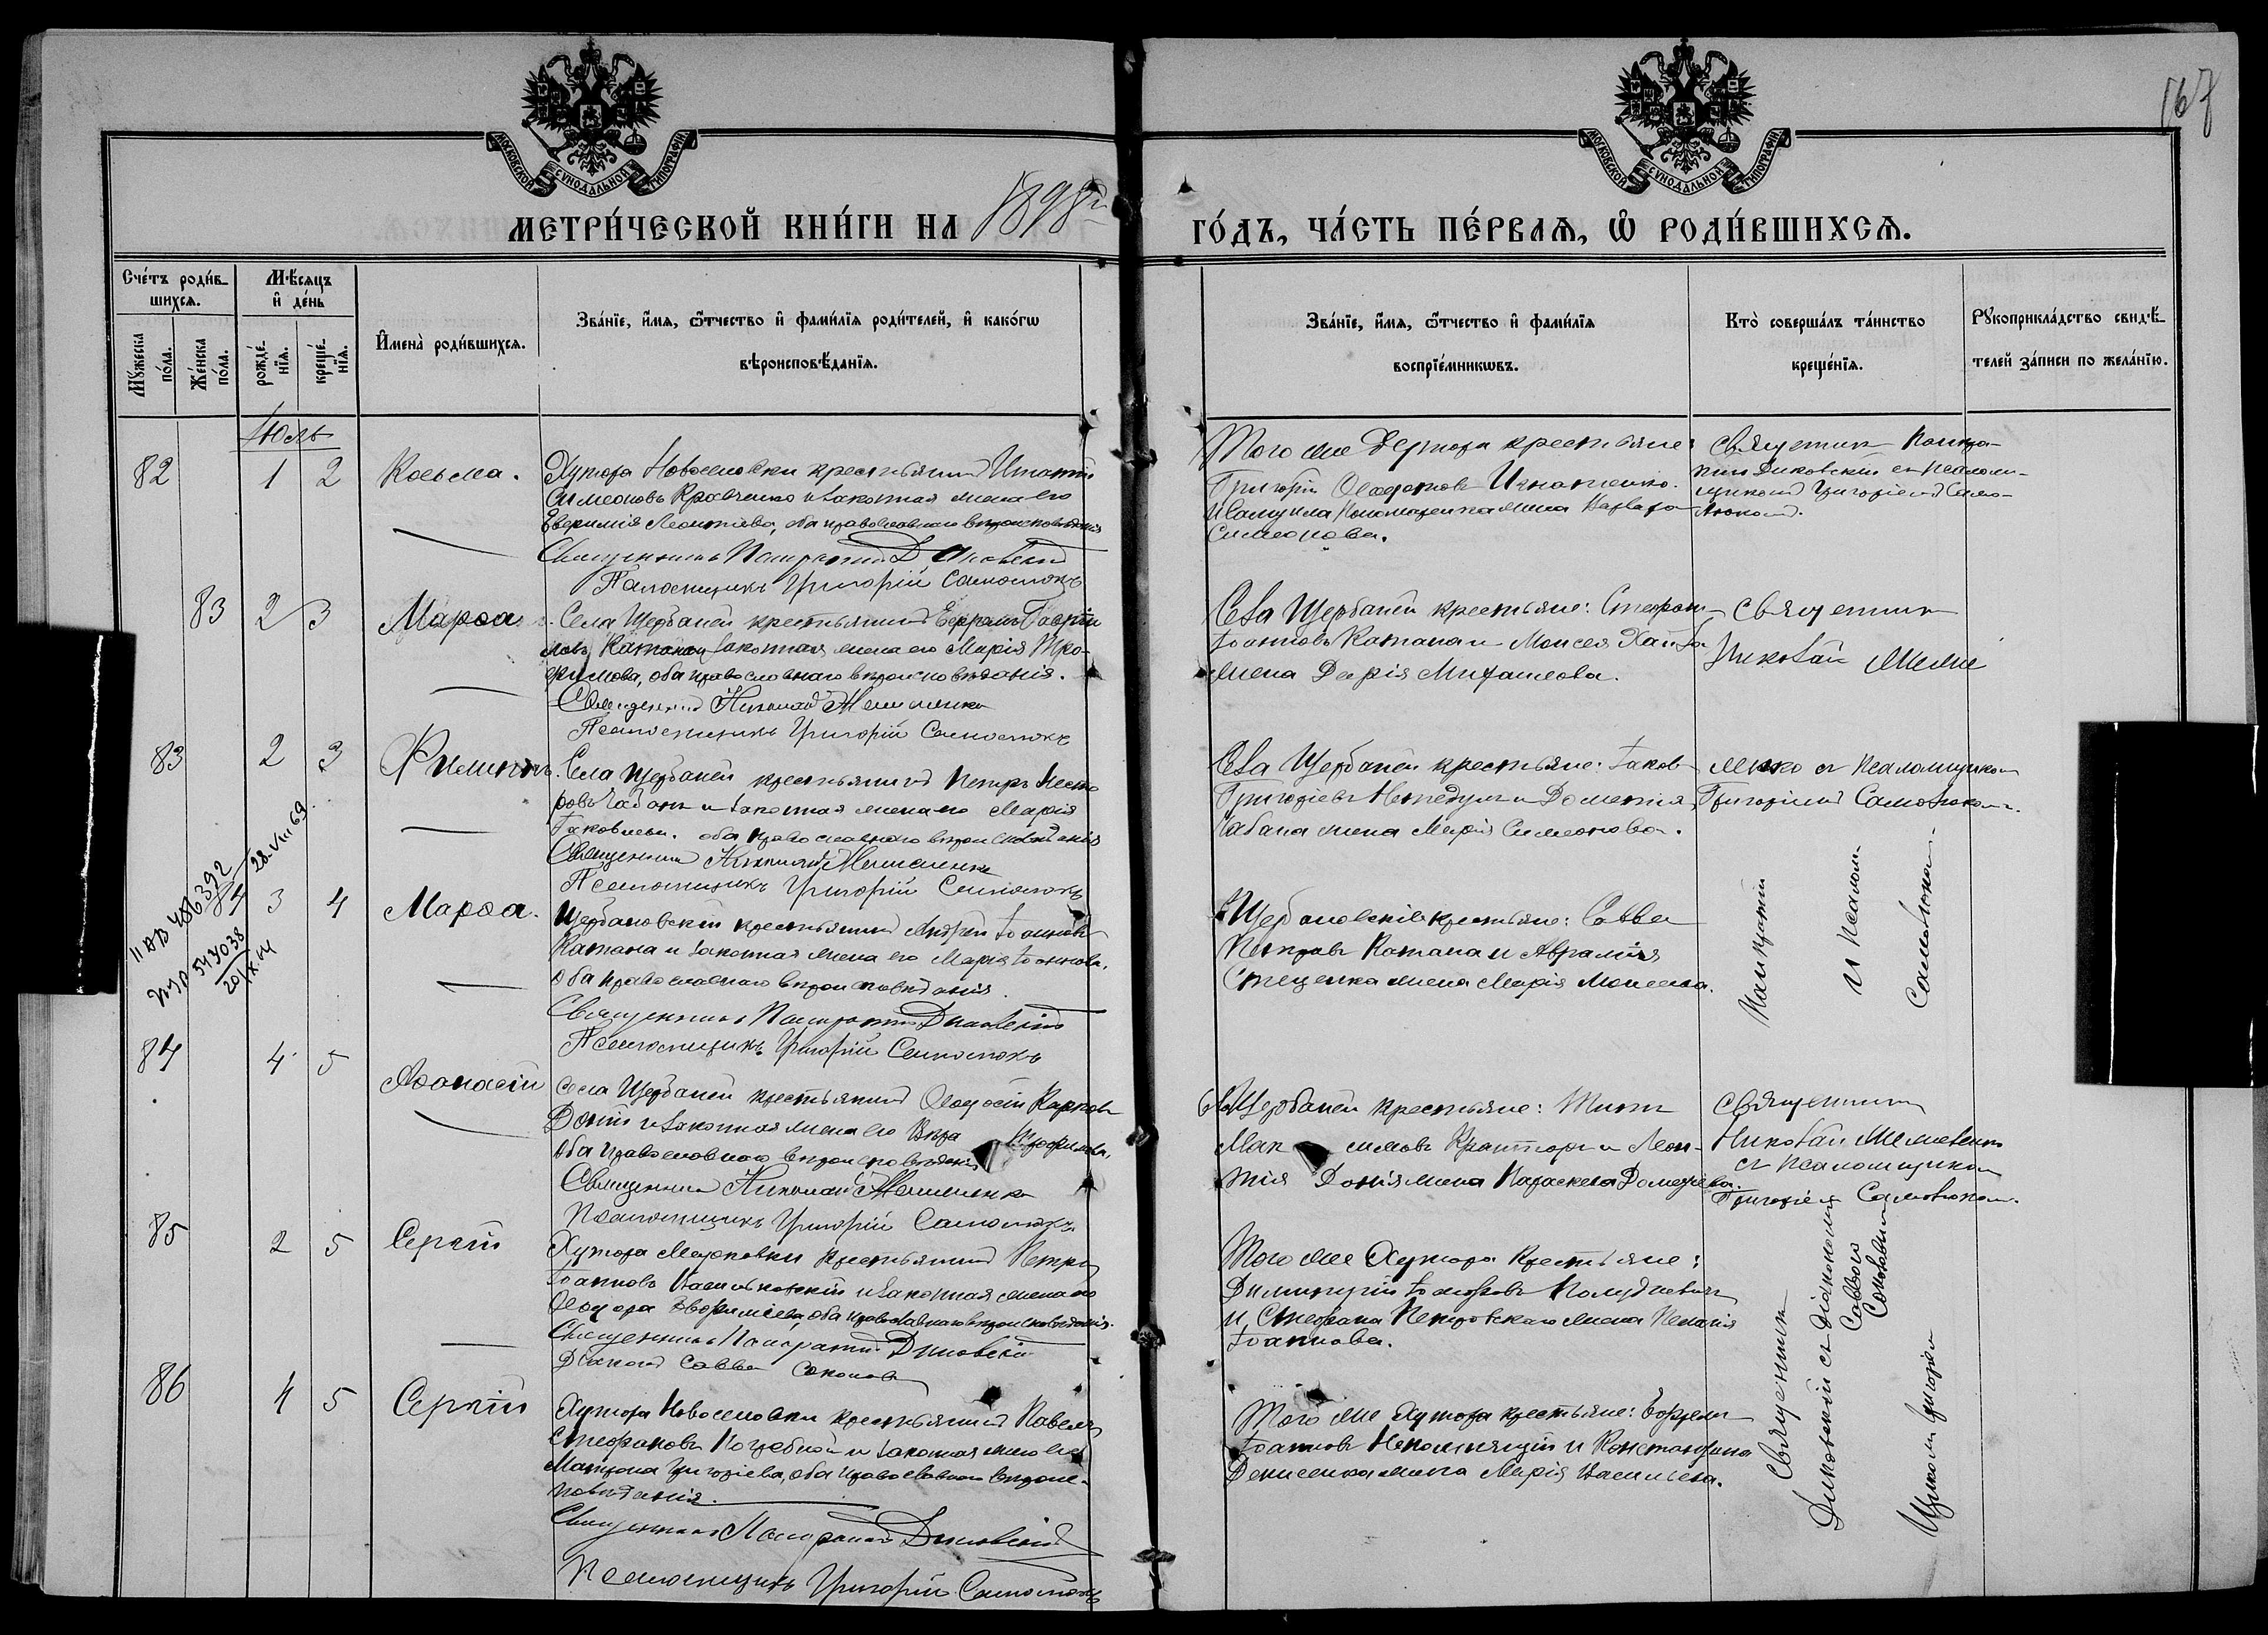 167
МОСКОВСКОЙ СѴНОДАЛЬНОЙ ТИПОГРАФІИ
МОСКОВСКОЙ СѴНОДАЛЬНОЙ ТИПОГРАФІИ
МЕТРИ́ЧЕСКОЙ КНИ́ГИ НА 1898й
ГО́ДЪ, ЧА́СТЬ ПЕ́РВАЯ, Ѡ РОДИ́ВШИХСЯ.
Сче́тъ роди́в-
шихся.
Му́жеска по́ла.
Же́нска по́ла.
Мѣ́сяцъ
и де́нь
рожде́-
нїя.
креще́-
нїя.
Имена̀ роди́вшихся.
Зва́нїе, и́мя, ѻ́тчество и фами́лїя роди́телей, и како́гѡ
вѣроисповѣ́данїя.
Зва́нїе, и́мя, ѻ́тчество и фами́лїя
воспрїе́мникѡвъ.
Кто̀ соверша́лъ та́инство
креще́нїя.
Рукоприкла́дство свидѣ́-
телей за́писи по жела́нїю.
Июль
82 1 2 Косьма.
Хутора Новоселовки крестьянинъ Игнатій
Симеоновъ Кравченко и законная жена его
Евфимія Леонтіева, оба православнаго вѣроисповѣданія
Священникъ Панкратій Диковскій
Псаломщикъ Григорій Самотокъ
Того же хутора крестьяне:
Григорій Игнатенко
Пономаренка жена Варвара
Симеонова.
Священникъ Панкра-
тій Диковскій съ псалом-
щикомъ Григоріемъ Само-
83 2 3 Марѳа
Села Щербаней крестьянинъ Ефремъ Гаврі
ловъ Катана законная жена его Марія Тро-
фимова, оба православнаго вѣроисповѣданія.
Священникъ Николай
Псаломщикъ Григорій Самотокъ
Села Щербаней крестьяне: Стефанъ
Іоанновъ Катана и Моисея
жена Дарія Михаилова.
Священникъ
Николай
83 2 3 Филиппъ.
Села Щербаней крестьянинъ Петръ Несто
ровъ Чабанъ и законная жена его Марія
Іаковлева. оба православнаго вѣроисповѣданія
Священникъ Николай
Псаломщикъ Григорій Самотокъ
Села Щербаней крестьяне: Іаковъ
Григоріевъ и Дометія
Чабана жена Марія Симеонова.
съ псаломщикомъ
Григоріемъ
28.VIII 69
II АВ 486392
543038
20/X.44
84 3 4 Марѳа.
Щербановскій крестьянинъ Андрей Іоанновъ
Катана и законная жена его Марія Іоаннова.
Оба православнаго вѣроисповѣданія.
Священникъ Панкратій Диковскій
Псаломщикъ Григорій Самотокъ
Щербановскіе крестьяне: Савва
Петровъ Катана и Авраамія
Стеценка жена Марія Моисеева.
Панкратій
и псалом-
84 4 5 Аѳанасій
Села Щербаней крестьянинъ Ѳеодосій Карповъ
Доній и законная жена его Вѣра Трофимова,
Оба православнаго вѣроисповѣданія
Священникъ Николай
Псаломщикъ Григорій Самотокъ
Щербаней крестьяне: Титъ
Максимовъ и Леон-
тія Донія жена Параскева
Священникъ
Николай
съ псаломщикомъ
Григоріемъ
85 2 5 Сергій
Хутора крестьянинъ Петръ
Іоанновъ и законная жена его
Ѳеодора Евфиміева, оба православнаго вѣроисповѣданія.
Священникъ Панкратій Диковскій
Діаконъ Савва Соколовъ
Того же Хутора крестьяне:
Димитрій
и Стефана Петровскаго жена Пелагія
Іоаннова.
Священникъ
Диковскій съ діакономъ
Саввою
Соколовымъ
86 4 5 Сергій
Хутора Новоселовки крестьянинъ Павелъ
Стефановъ Погребной и законная жена его
Матрона Григоріева, оба православнаго вѣроис-
повѣданія.
Священникъ Панкратій Диковскій
Псаломщикъ Григорій Самотокъ
Того же Хутора крестьяне: Ефремъ
Іоанновъ Непомнящій и Константина
Денисенка жена Марія Васильева.